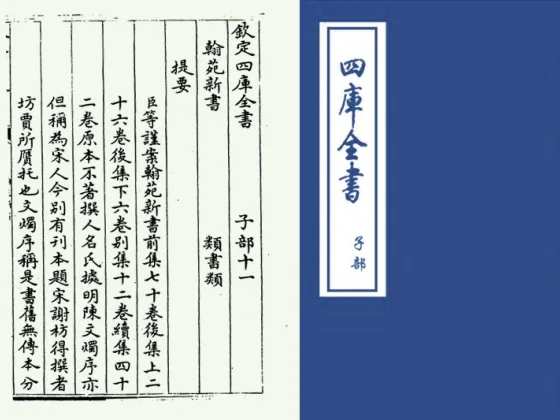 欽定四庫全書 子部十一
翰苑新書 類書類
提要
臣等謹案翰苑新書前集七十卷後集上二
十六卷後集下六卷別集十二卷續集四十
二卷原本不著撰人名氏據明陳文燭序亦
但稱為宋人今別有刊本題宋謝枋得撰者
坊賈所贗托也文燭序稱是書舊無傳本分
四庫全書
子部